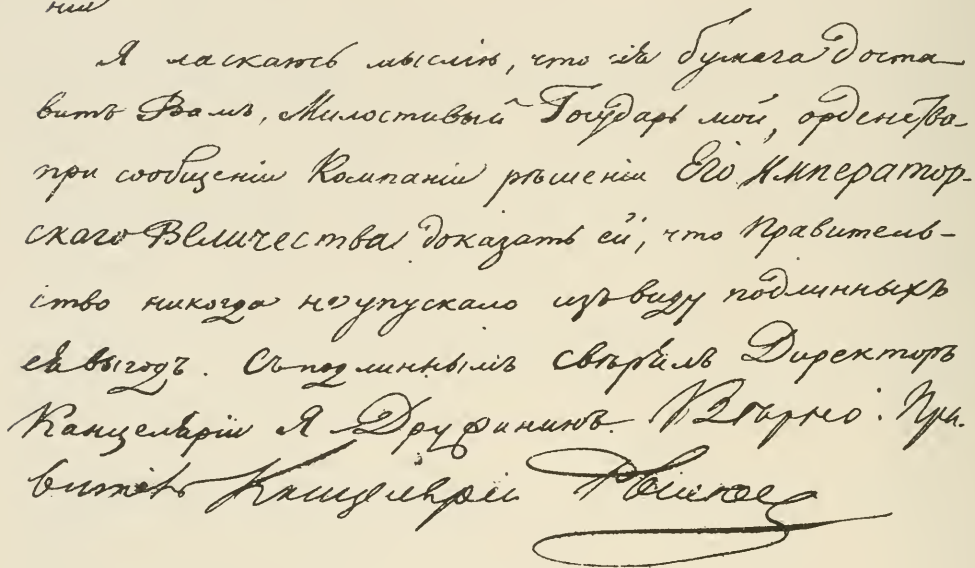 нии
Я ласкаюсь мыслію, что сія бумага доста
витъ Вамъ, Милостивый Государь мой,
при сообщеніи Компаніи рѣшенія Его Император-
скаго Величества доказать ей, что Правитель-
ство никогда не упускало изъ виду подлинныхъ
ея выгодъ. Съ подлиннымъ свѣрялъ Директоръ
Канцеляріи Я Дружининъ. Вѣрно: Пра.
витель Канцеляріи